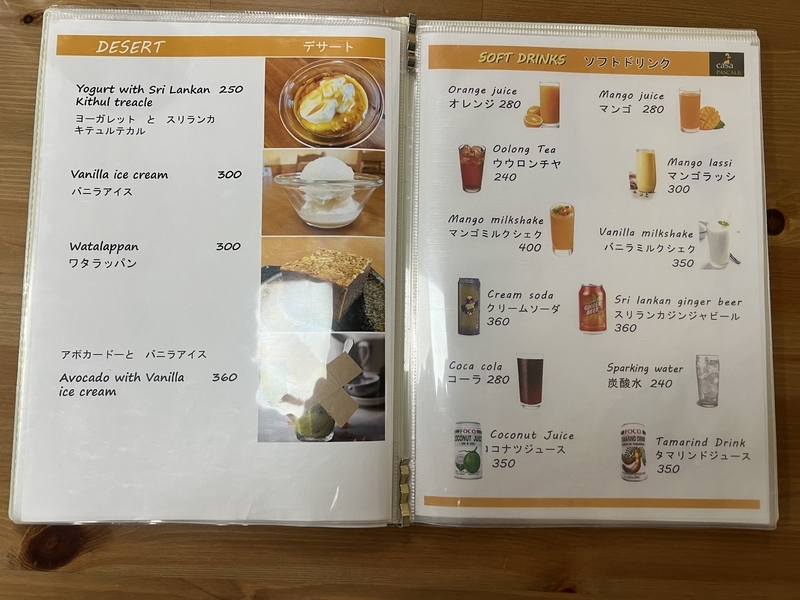 DESERT デサート
Yogurt with Sri Lankan 250
Kithul treacle
ヨーガレット と スリランカ
キテュルテカル
Vanilla ice cream 300
バニラアイス
Watalappan 300
ワタラッパン
アボカードーと バニラアイス
Avocado with Vanilla 360
ice cream
SOFT DRINKS ソフトドリンク
casa
PASCALE
Orange juice
オレンジ 280
Mango juice
マンゴ 280
Oolong Tea
ウウロンチヤ
240
Mango lassi
マンゴラッシ
300
Mango milkshake
マンゴミルクシェク
400
Vanilla milkshake
バニラミルクシェク
350
Cream soda
クリームソーダ
360
GINGER
BEER
Sri lankan ginger beer
スリランカジンジャビール
360
Coca cola
コーラ 280
Sparking water
炭酸水 240
FOCO
COCONUT JUICE
Coconut Juice
ココナツジュース
350
FOCO
TAMARIND DRINK
Tamarind Drink
タマリンドジュース
350